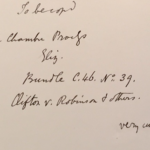 To be copd
Chambr Brocks
Eliz.
Bundle C. 46. No. 39.
Clifton v. Robinson & others.
very